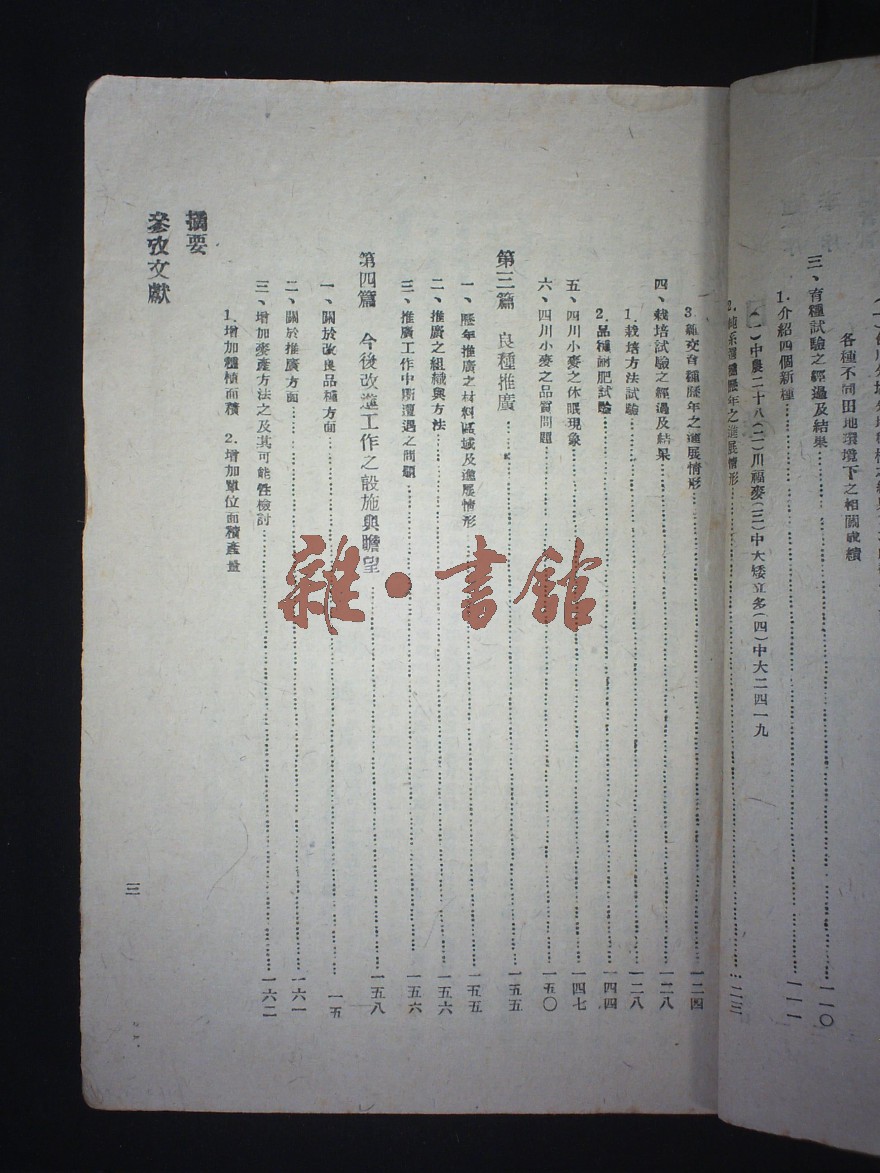 各種不同田地環境下之相關成績
三、育種試驗之經過及結果……一一〇
1.介紹四個新種……一一一
(一)中農二十八(二)川福麥(三)中大矮立多(四)中大二四一九
2.純系選種歷年之進展情形……一二三
3.雜交育種歷年之進展情形……一二四
四、栽培試驗之經過及結果……一二八
1.栽培方法試驗……一二八
2.品種耐肥試驗……一四四
五、四川小麥之休眠現象……一四七
六、四川小麥之品質問題……一五〇
第三篇 良種推廣……一五五
一、歷年推廣之材料區域及進展情形……一五五
二、推廣之組織與方法……一五六
三、推廣工作中所遭遇之問題……一五六
第四篇 今後改進工作之設施與瞻望……一五八
一、關於改良品種方面……一五
二、關於推廣方面……一六一
三、增加麥產方法之及其可能性檢討……一六二
1.增加種植面積 2.增加單位面積產量
摘要
參攷文獻
三
雜·書館